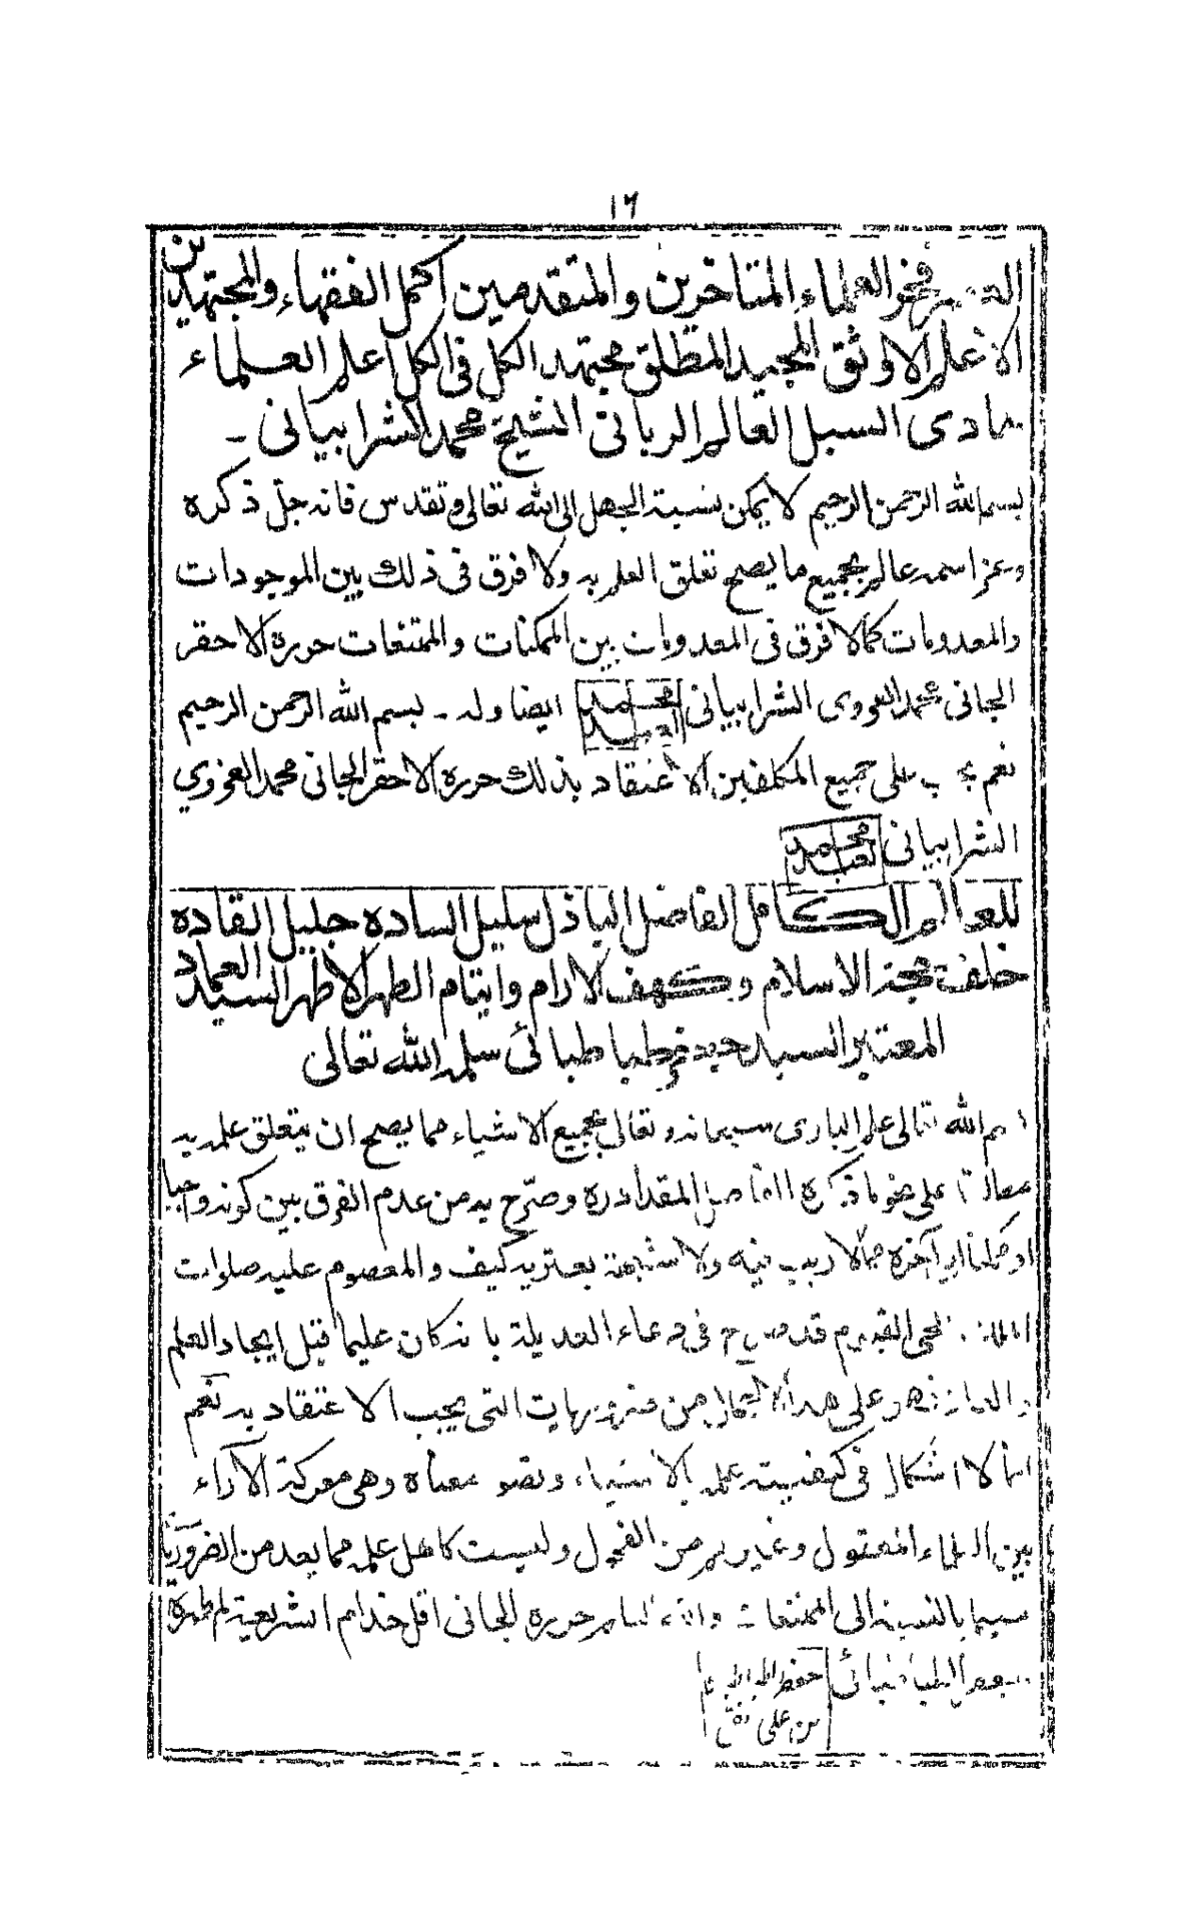 ١٦
فخر العلماء المتاخرين والمتقدمين اكمل الفقهاء والمجتهدين
الاعلم الاوثق المجيد المطلق مجتهد الكل فى الكل اعلم العلماء
هادى السبل العالم الربانى الشيخ محمد الشرابيانى
بسم الله الرحمن الرحيم لا يمكن نسبة الجهل الى الله تعالى وتقدس فانه جل ذكره
وعز اسمه عالم بجميع ما يصح تعلق العلم به ولا فرق فى ذلك بين الموجودات
والمعدومات كما لا فرق فى المعدومات بين الممكنات والممتنعات حرره الاحقر
الجانى محمد الغروى الشرابيانى محمد العبد ايضا وله ـ بسم الله الرحمن الرحيم
نعم يجب على جميع المكلفين الاعتقاد بذلك حرره الاحقر الجانى محمد الغروي
الشرابيانى محمد العبد
للعالم الكامل الفاضل الباذل سليل الساده جليل القاده
خلف حجة الاسلام وكهف الارام وايتام الطهر الاطهر السيد العماد
المعتبر السيد طباطبائى سلمه الله تعالى
الله تعالى علم البارى سبحانه وتعالى بجميع الاشياء مما يصح ان يتعلق علمه به
على نحو ما ذكره الفاضل المقداد ره وصرّح به من عدم الفرق بين كونه واجبا
الى آخره مما لا ريب فيه ولا شبهة يعتريه كيف والمعصوم عليه صلوات
الحى القيوم قد صرح فى دعاء العديلة بانه كان عليما قبل ايجاد العلم
على هذا من ضروريات التى يجب الاعتقاد به نعم
لا اشكال فى كيفية علمه بالاشياء وتصور معناه وهى معركة الآراء
بين العلماء المعقول وغيرهم من الفحول وليست كاصل علمه مما يعد من الضروريات
سيما بالنسبة الى الممتنعات والله العالم حرره الجانى اقل خدام الشريعة المطهرة
الطباطبائى حفظ الله
بن على نقى